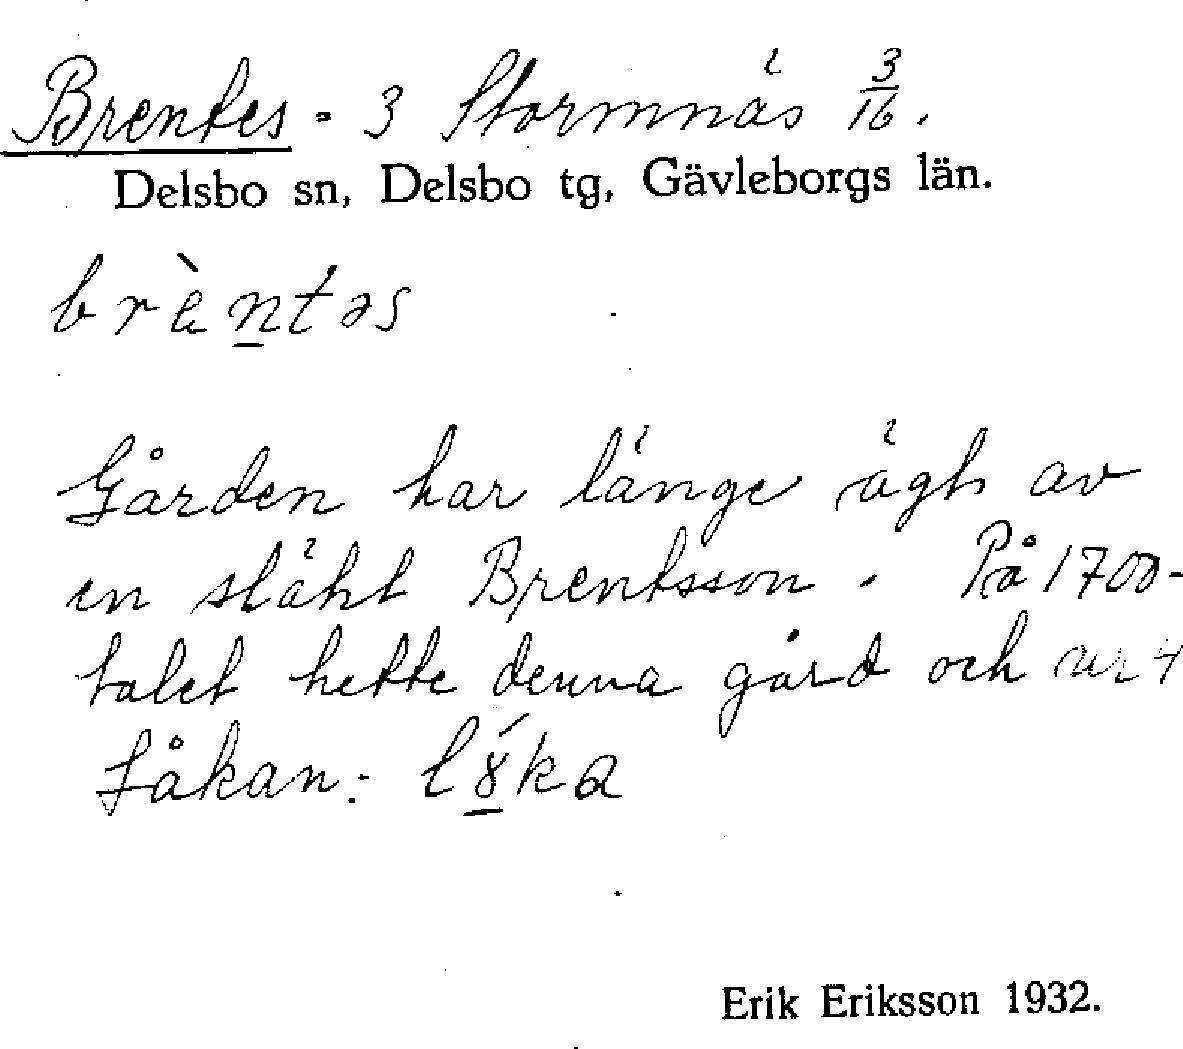 Brentes - 3 Stormnäs 3/16.
Delsbo sn, Delsbo tg, Gävleborgs län.
brèntəs
Gården har länge ägts av
en släkt Brentsson. På 1700-
talet hette denna gård och nr 4
Låkan:
Erik Eriksson 1932.